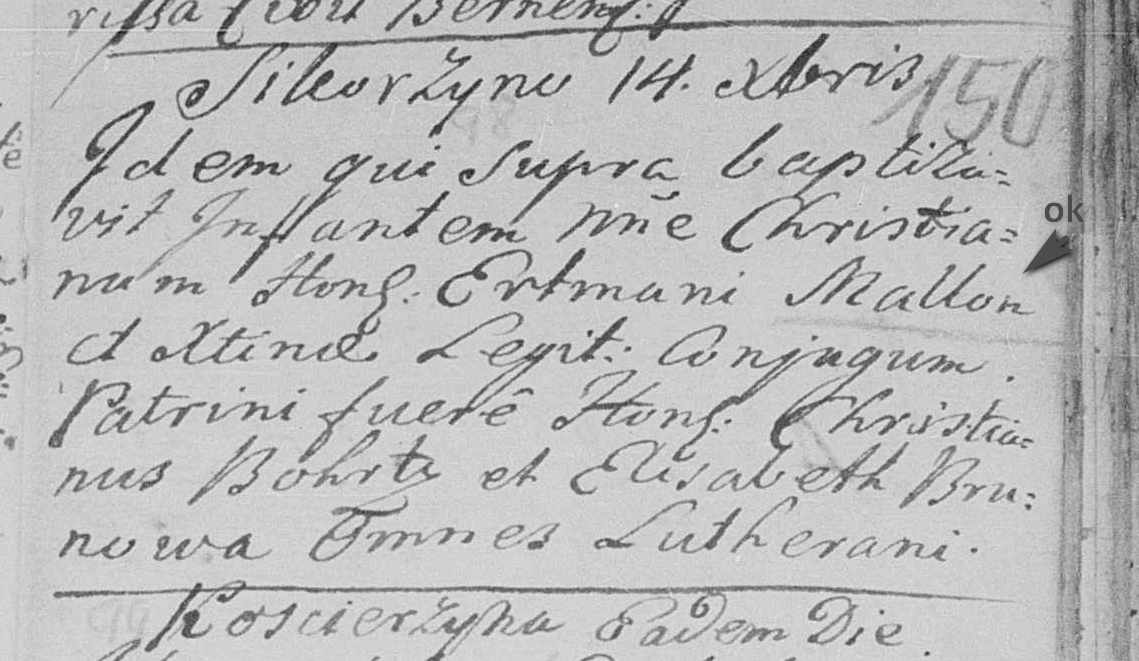 Sikorzyno 14. Xbris
150
Idem qui supra baptiza=
vit Infantem nñe Christia= ok
num Hons. Ertmani Mallon
et Xtinæ Legit: Conjugum.
Patrini fuerê Hons. Christia=
nus Bohrtz et Elisabeth Bru=
nowa Omnes Lutherani.
Koscierzyna Eadem Die